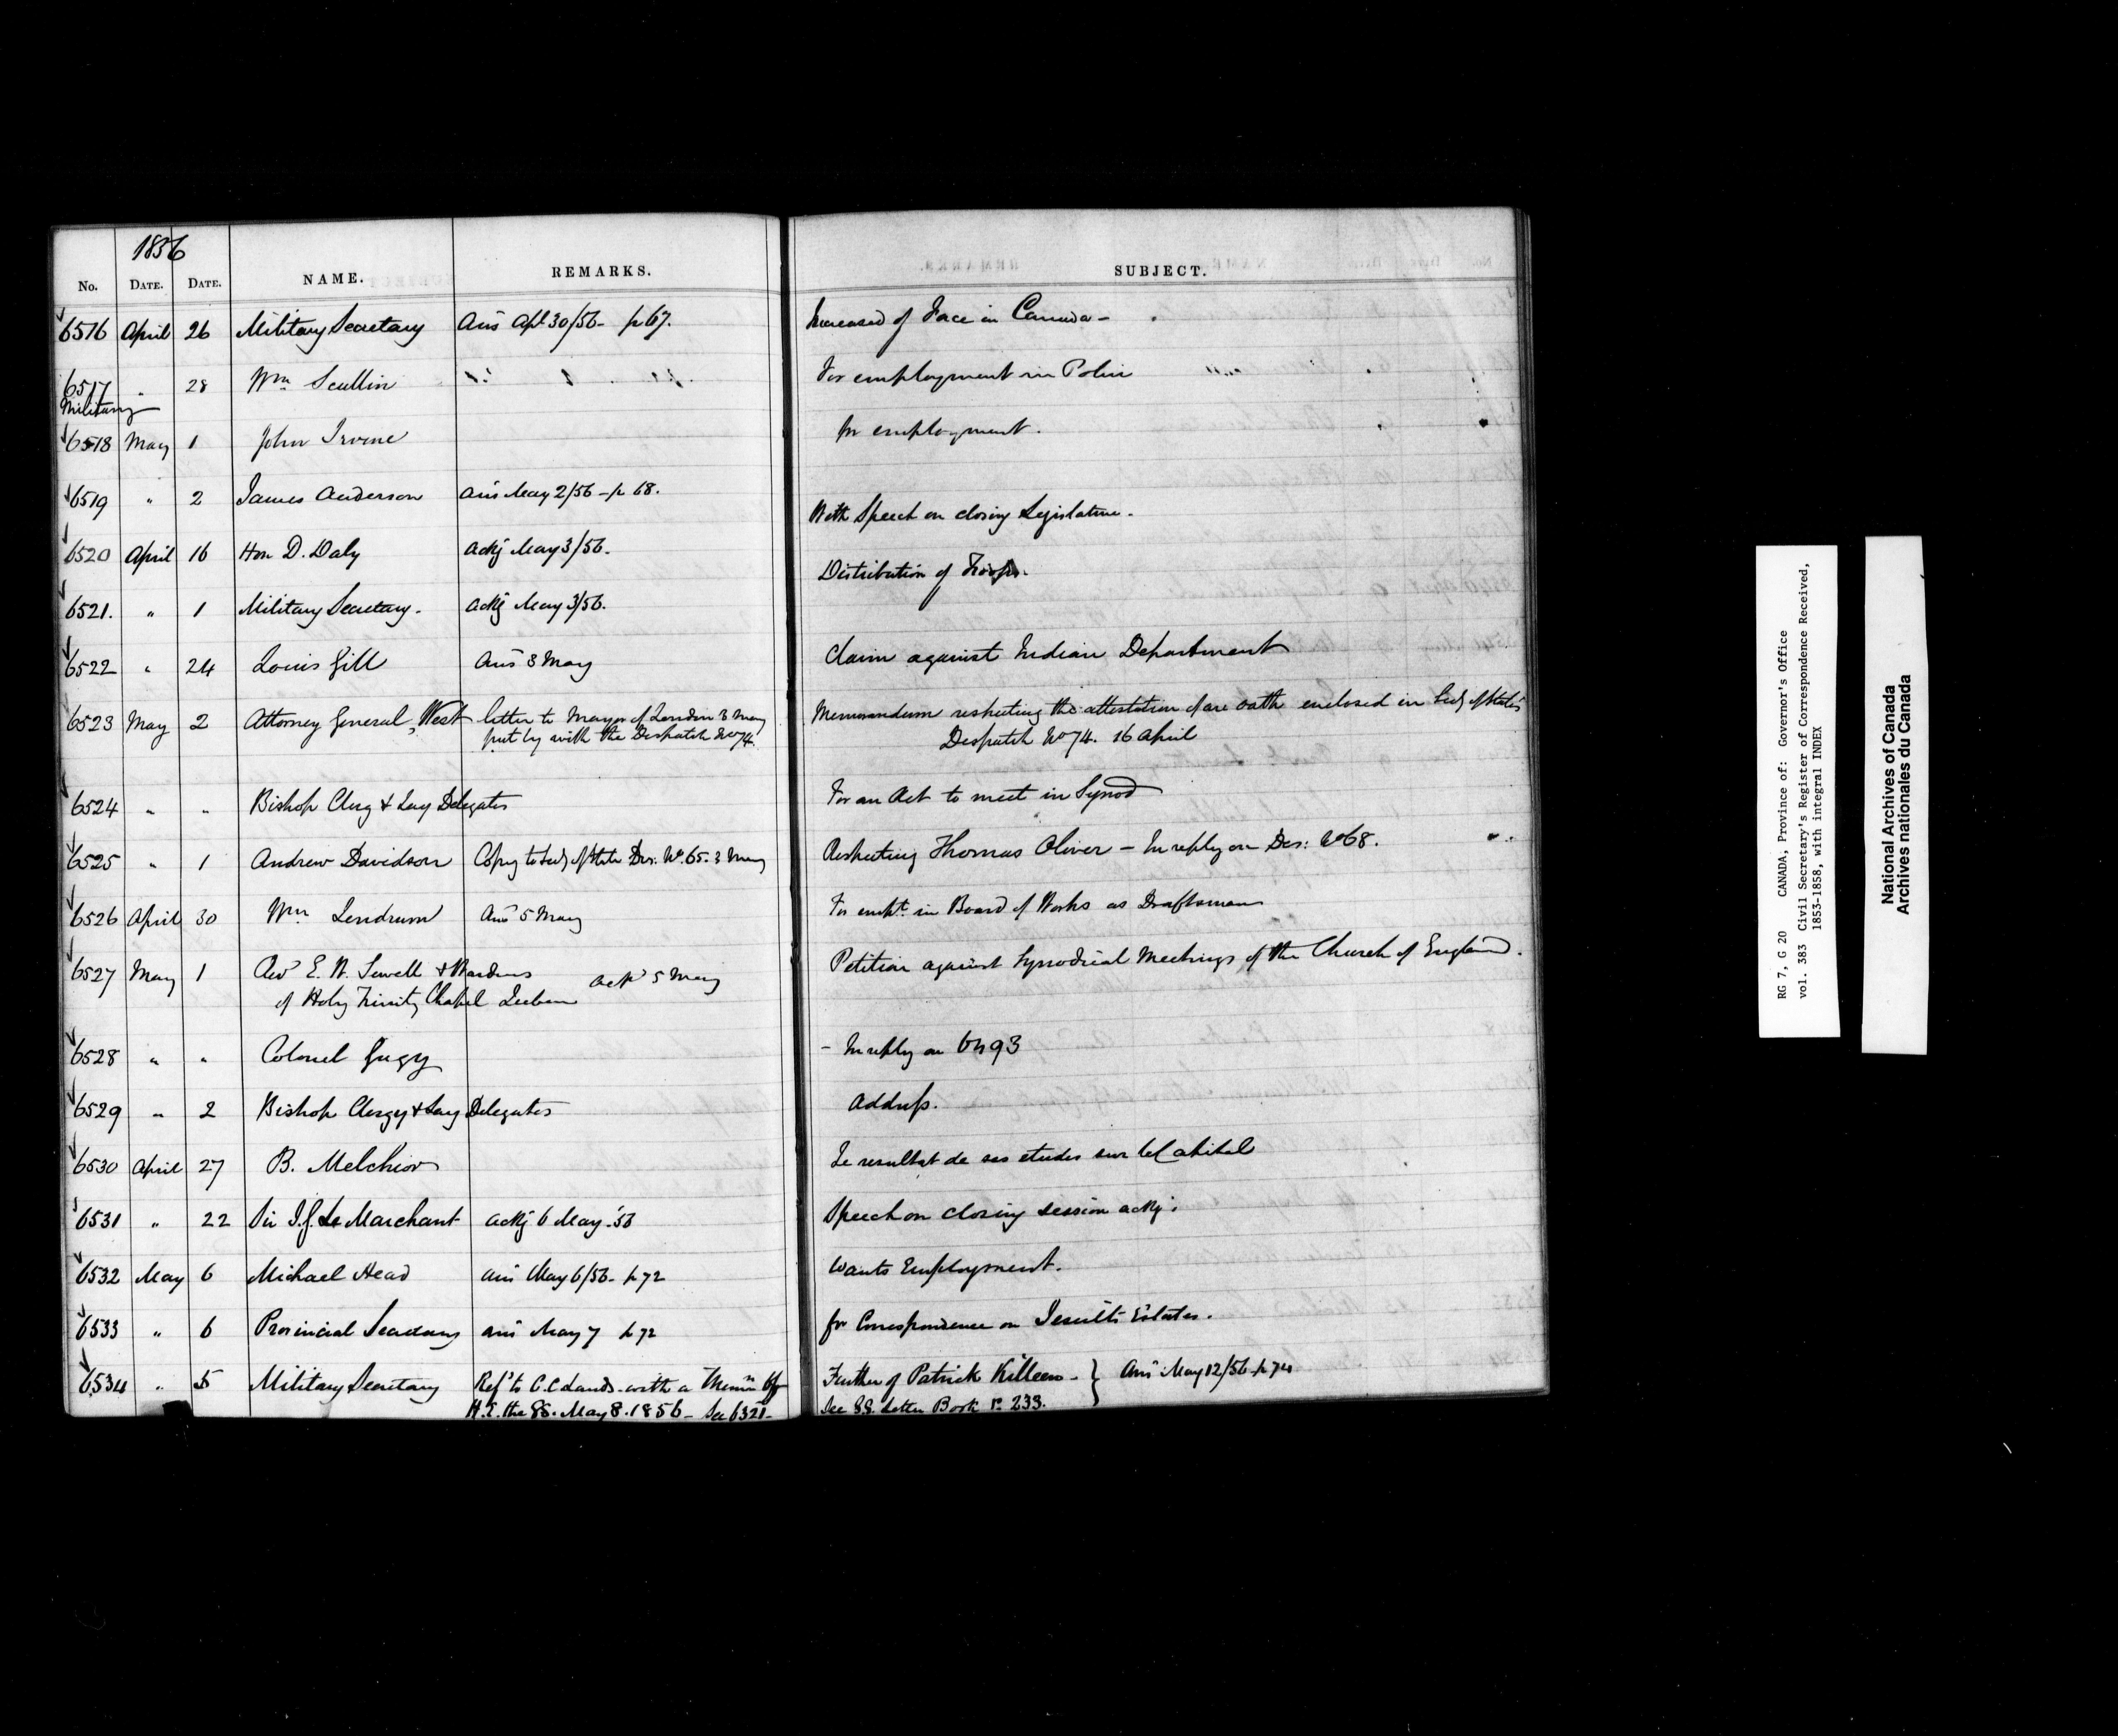 1856
No. DATE. DATE. NAME. REMARKS. SUBJECT.
6516 April 26 Military Secretary Ans Apl 30/56 - p 67. Increased of Force in Canada -
6517 " 28 Wm Scullin For employment in Police
Military
6518 May 1 John Irvine for employment.
6519 " 2 James Anderson Ans May 2/56 - p 68.
With Speech on closing Legislature.
6520 April 16 Hon D. Daly ackg May 3/56.
Distribution of Troops.
6521. " 1 Military Secretary. ackg May 3/56.
6522 " 24 Louis Gill Ans 3 May Claim against Indian Department
6523 May 2 Attorney General, West letter to Mayor of London 3 May Memorandum respecting the attestation of an oath enclosed in Secy of State's
put by with the Despatch No 74. Despatch No 74. 16 April
6524 " " Bishop Clerg & Lay Delegates For an Act to meet in Synod
6525 " 1 Andrew Davidson Copy to Secy of State Des: No. 65. 3 May Respecting Thomas Oliver - In reply on Des: No 68.
6526 April 30 Wm Lendrum Ans 5 May For empt. in Board of Works as Draftsman
6527 May 1 Revd E. W. Sewell & Wardens Petition against Synodical Meetings of the Church of England.
of Holy Trinity Chapel Quebec 5 May
6528 " " Colonel Gugy - In reply on 6493
6529 " 2 Bishop Clergy & Lay Delegates Address.
6530 April 27 B. Melchior Le resultat de ses etudes sur le Capital
6531 " 22 Sir J. G. Le Marchant ackg 6 May. '56 Speech on closing session ackg:
6532 May 6 Michael Head Ans May 6/56 - p 72 Wants Employment.
6533 " 6 Provincial Secretary Ans May 7 p 72 for Correspondence on Jesuits Estates.
6534 " 5 Military Secretary Refd to C. C. Lands - with a Memn of Further of Patrick Killeen - } Ans May 12/56 - p 74
H. E. the GG. May 8. 1856 - See 6321 - See GG. Letter Book p. 233.
RG 7, G 20 CANADA, Province of: Governor's Office
vol. 383 Civil Secretary's Register of Correspondence Received,
1853-1858, with integral INDEX
National Archives of Canada
Archives nationales du Canada